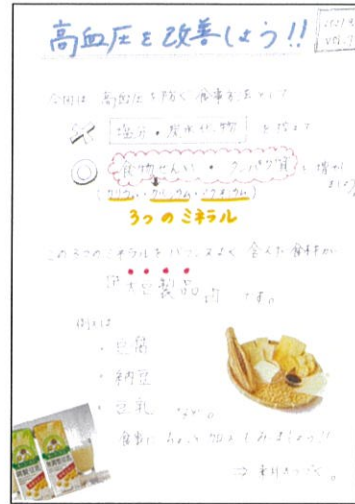 高血圧を改善しよう!!
今回は 高血圧を防ぐ食事方法として
塩分・炭水化物 を控えて
食物せんい・タンパク質 を増や
3つのミネラル
この3つのミネラルをバランスよく含んだ食材が
大豆製品 です。
例えば
・豆腐
・納豆
・豆乳 など。
食事にちょっと加えてみましょう!!